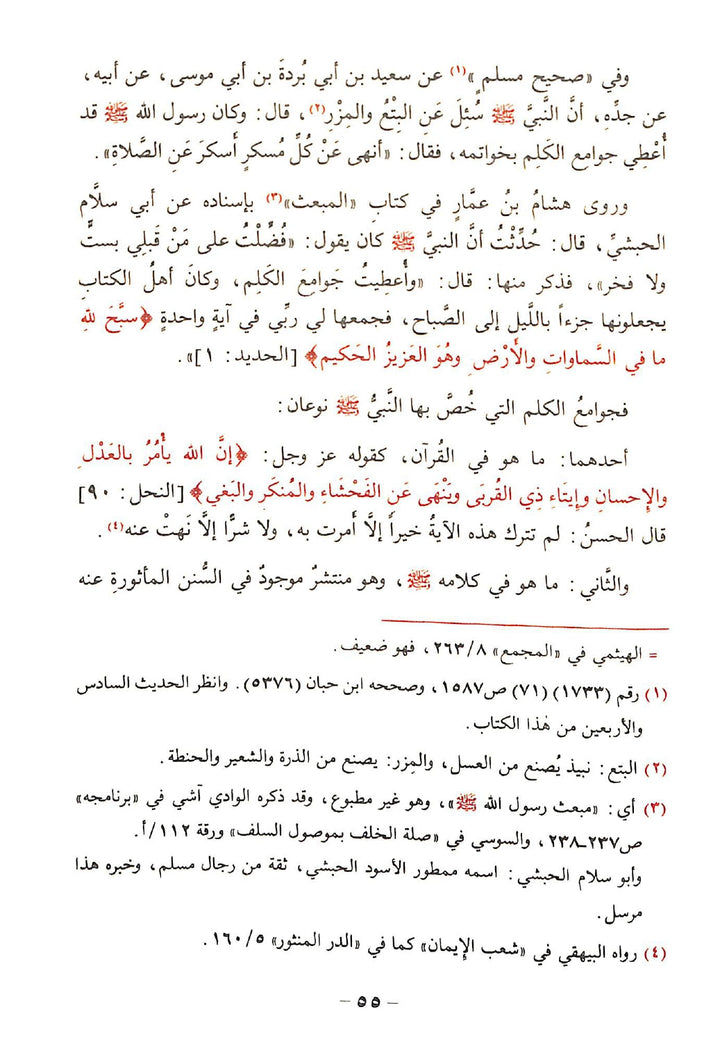 وفي «صحيح مسلمٍ»(١) عن سعيد بن أبي بُردةَ بن أبي موسى، عن أبيه،
عن جدِّه، أنَّ النَّبيَّ ﷺ سُئِلَ عَنِ البِتْعِ والمِزْرِ(٢)، قال: وكان رسول الله ﷺ قد
أُعْطِي جوامع الكَلِم بخواتمه، فقال: «أنهى عَنْ كُلِّ مُسكرٍ أسكرَ عَنِ الصَّلاةِ».
وروى هشامُ بنُ عمَّارٍ في كتابِ «المبعث»(٣) بإسناده عن أبي سلَّام
الحبشيِّ، قال: حُدِّثْتُ أنَّ النبيَّ ﷺ كان يقول: «فُضِّلْتُ على مَنْ قَبلِي بستٍّ
ولا فخر»، فذكر منها: قال: «وأُعطِيتُ جَوامِعَ الكَلِم، وكانَ أهلُ الكتابِ
يجعلونها جزءاً باللَّيل إلى الصَّباح، فجمعها لي ربِّي في آيةٍ واحدةٍ ﴿سبَّحَ للهِ
ما في السَّماواتِ والأَرْضِ وهُوَ العَزيزُ الحَكيم﴾ [الحديد: ١]».
فجوامعُ الكلم التي خُصَّ بها النَّبيُّ ﷺ نوعان:
أحدهما: ما هو في القُرآن، كقوله عز وجل: ﴿إنَّ الله يأْمُرُ بالعَدْلِ
والإحسانِ وإيتَاءِ ذِي القُربَى ويَنْهَى عَنِ الفَحْشَاءِ والمُنكَرِ والبَغي﴾ [النحل: ٩٠]
قال الحسنُ: لم تترك هذه الآيةُ خيراً إلَّا أمرت به، ولا شرًّا إلَّا نَهتْ عنه(٤).
والثَّاني: ما هو في كلامه ﷺ، وهو منتشرٌ موجودٌ في السُّنن المأثورةِ عنه
= الهيثمي في «المجمع» ٢٦٣/٨، فهو ضعيف.
(١) رقم (١٧٣٣) (٧١) ص١٥٨٧، وصححه ابن حبان (٥٣٧٦). وانظر الحديث السادس
والأربعين من هٰذا الكتاب.
(٢) البتع: نبيذ يُصنع من العسل، والمِزر: يصنع من الذرة والشعير والحنطة.
(٣) أي: «مبعث رسول الله ﷺ»، وهو غير مطبوع، وقد ذكره الوادي آشي في «برنامجه»
ص٢٣٧-٢٣٨، والسوسي في «صلة الخلف بموصول السلف» ورقة ١١٢/أ.
وأبو سلام الحبشي: اسمه ممطور الأسود الحبشي، ثقة من رجال مسلم، وخبره هذا
مرسل.
(٤) رواه البيهقي في «شعب الإيمان» كما في «الدر المنثور» ١٦٠/٥.
- ٥٥ -